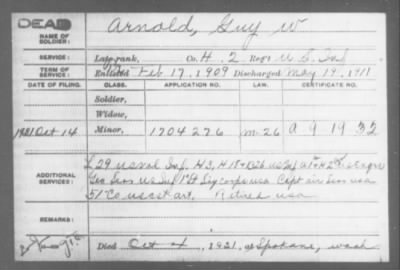 DEAD
Arnold, Guy W
NAME OF SOLDIER:
SERVICE: Late rank, Co. H. 2. Reg't U S. Inf
TERM OF SERVICE: Enlisted Feb 17, 1909 Discharged May 19, 1911
DATE OF FILING. CLASS. APPLICATION NO. LAW. CERTIFICATE NO.
Soldier,
Widow,
1921 Oct 14 Minor, 1204276 m-26 A 9 19 32
29 US Vol Inf.
ADDITIONAL SERVICES: US Inf 1st Lt Sig Corps USA Capt Air Serv USA
51 Co US Cst Art. Retired USA
REMARKS:
Died Oct 4, 1921, at Spokane, Wash.